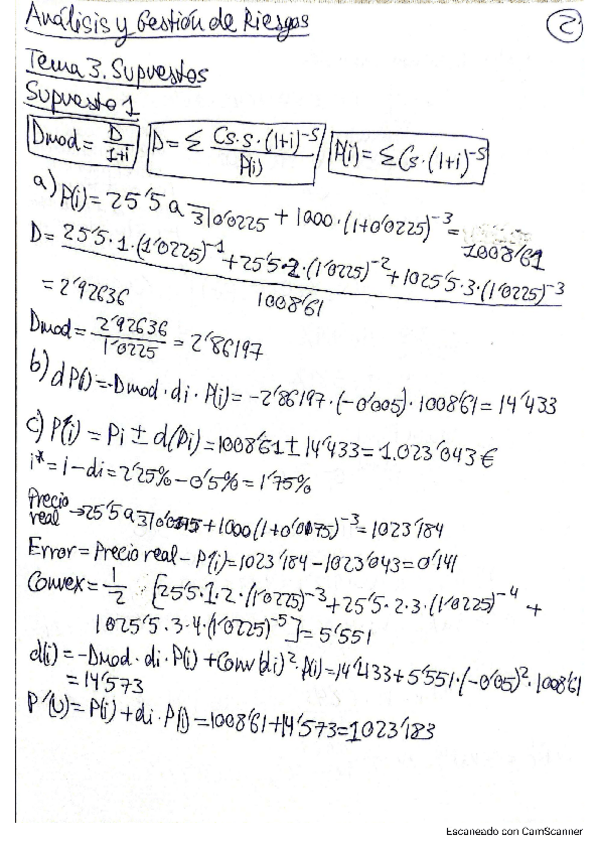 Análisis y Gestión de Riesgos
2
Tema 3. Supuestos
Supuesto 1
Dmod = D/1+i   D = Σ Cs·s·(1+i)^-s / P(i)   P(i) = Σ Cs·(1+i)^-s
a) P(i) = 25'5 a 3⌉0'0225 + 1000·(1+0'0225)^-3 = 1008'61
D = 25'5·1·(1'0225)^-1 + 25'5·2·(1'0225)^-2 + 1025'5·3·(1'0225)^-3
1008'61
= 2'92636
Dmod = 2'92636 / 1'0225 = 2'86197
b) dP(i) = -Dmod·di·P(i) = -2'86197·(-0'005)·1008'61 = 14'433
c) P'(i) = Pi ± d(Pi) = 1008'61 ± 14'433 = 1.023'043 €
i* = i - di = 2'25% - 0'5% = 1'75%
Precio real → 25'5 a 3⌉ + 1000 (1+0'0175)^-3 = 1023'184
Error = Precio real - P'(i) = 1023'184 - 1023'043 = 0'141
Convex = 1/2 [25'5·1·2·(1'0225)^-3 + 25'5·2·3·(1'0225)^-4 +
1025'5·3·4·(1'0225)^-5] = 5'551
d(i) = -Dmod·di·P(i) + Conv(di)^2·P(i) = 14'433 + 5'551·(-0'05)^2·1008'61
= 14'573
P'(i) = P(i) + di·P(i) = 1008'61 + 14'573 = 1023'183
Escaneado con CamScanner